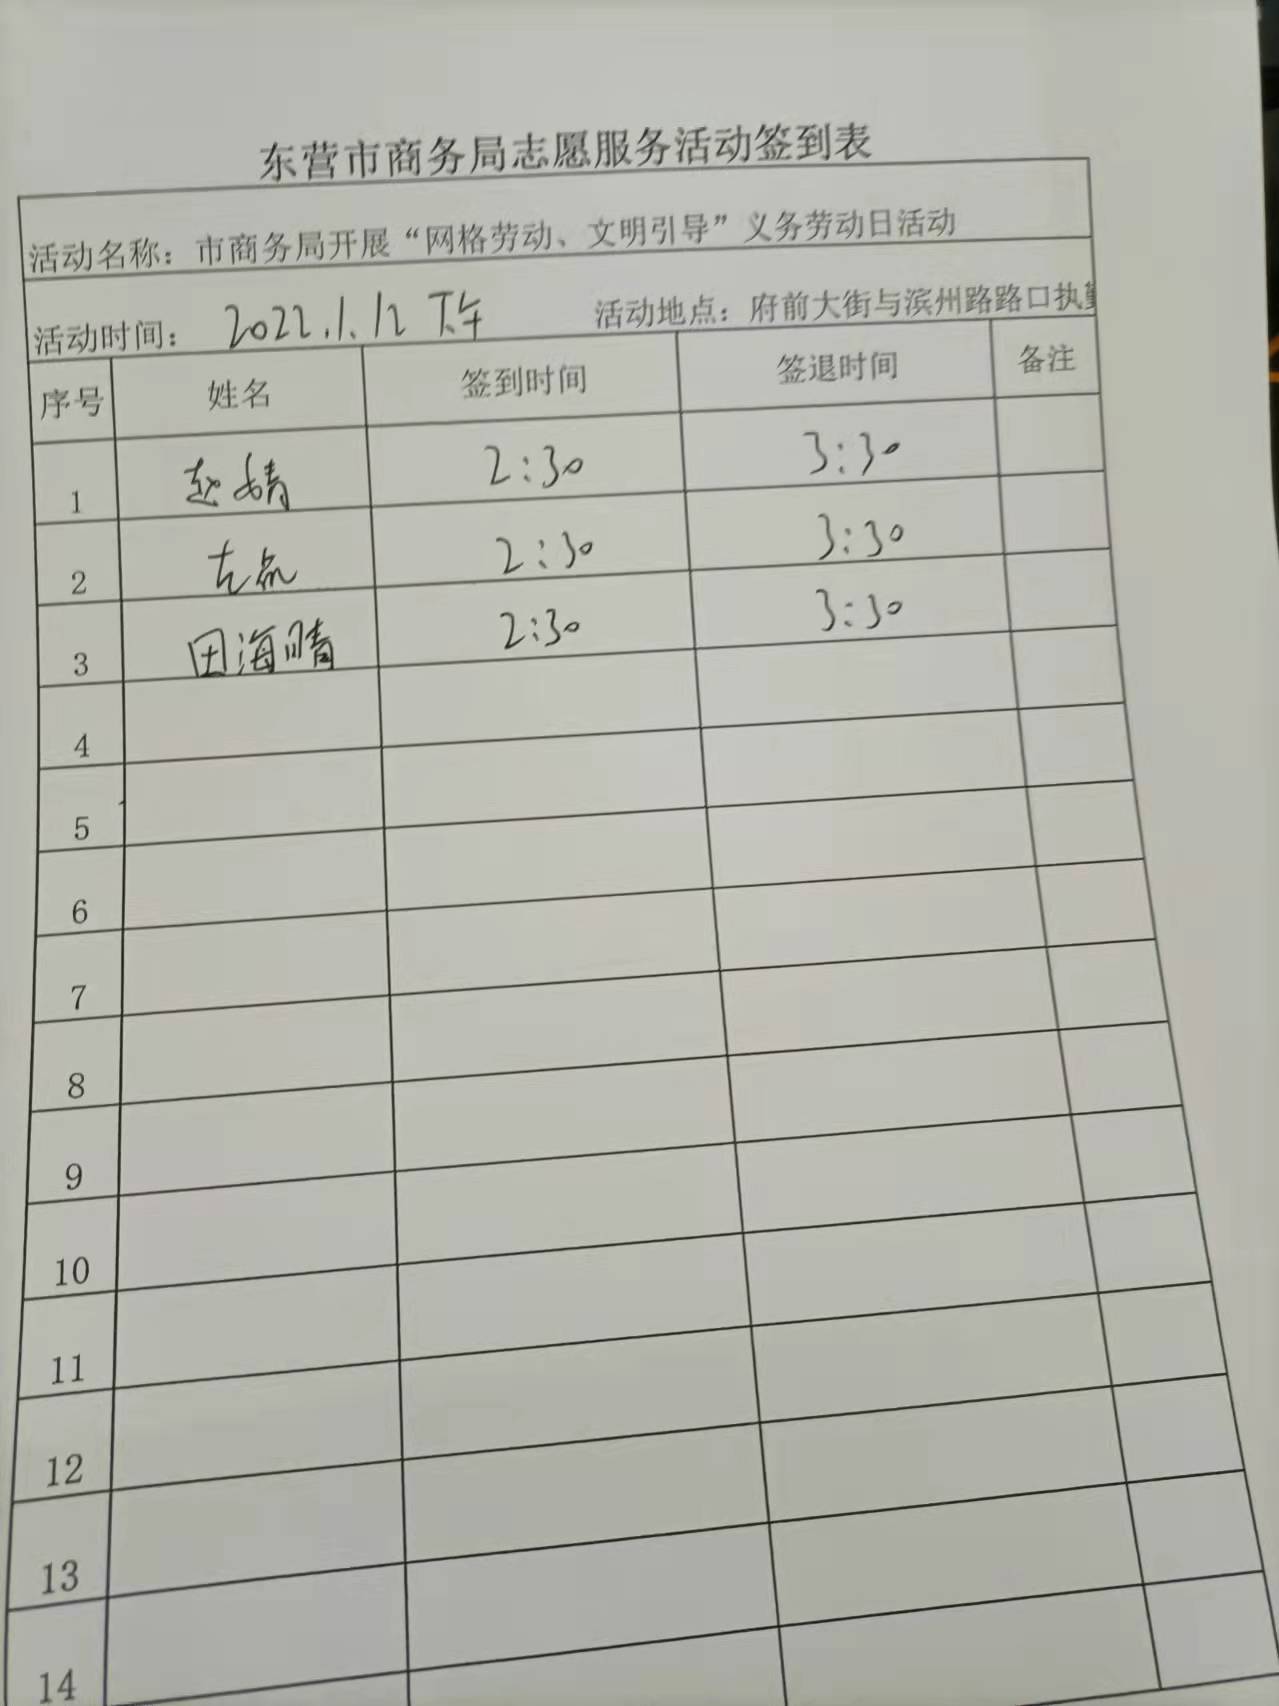 东营市商务局志愿服务活动签到表
活动名称：市商务局开展“网格劳动、文明引导”义务劳动日活动
活动时间： 2022.1.12 下午 活动地点：府前大街与滨州路路口执勤
序号 姓名 签到时间 签退时间 备注
1 赵婧 2:30 3:30
2 左 2:30 3:30
3 田海晴 2:30 3:30
4
5
6
7
8
9
10
11
12
13
14